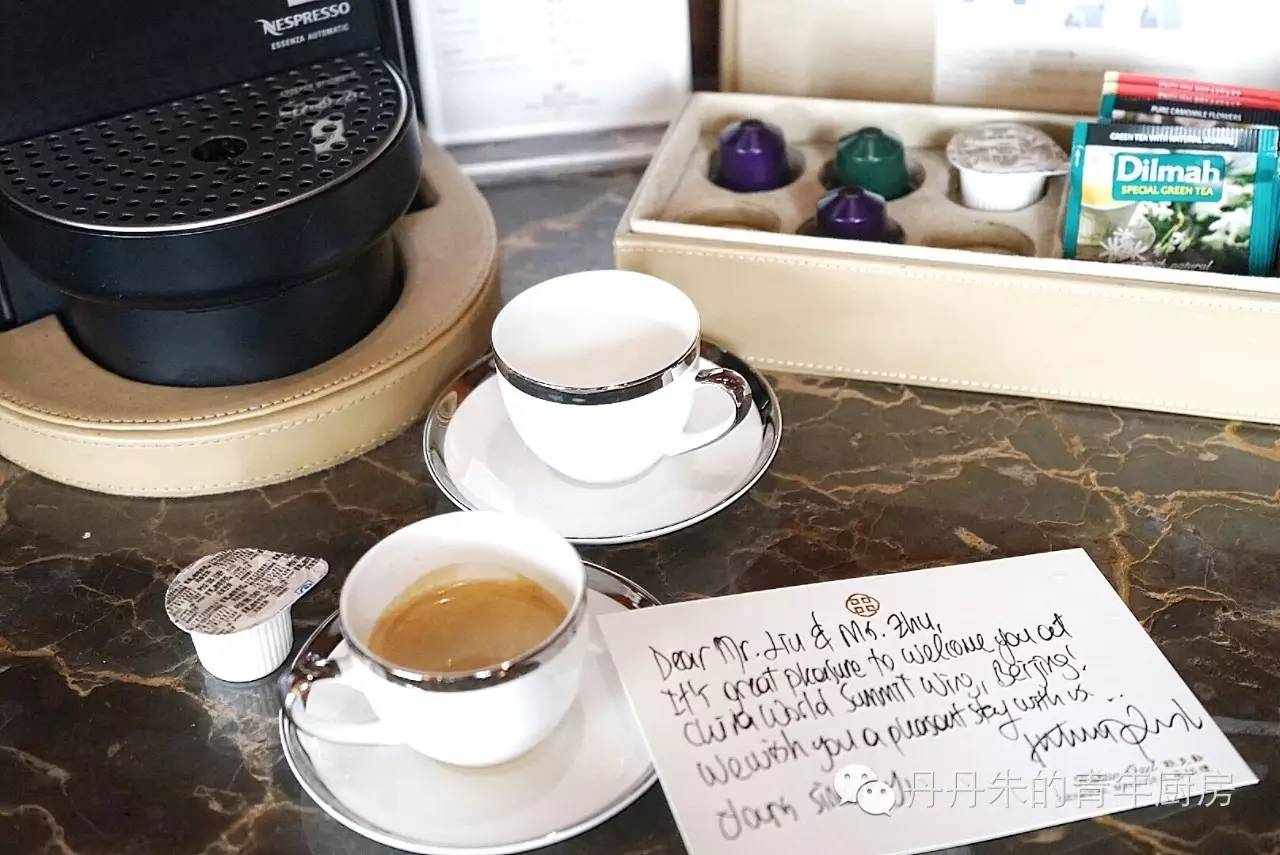 NESPRESSO
ESSENZA AUTOMATIC
PURE CAMOMILE FLOWERS
GREEN TEA WITH NATURAL
Dilmah
SPECIAL GREEN TEA
natural
Dear Mr. Liu & Ms. Zhu,
It's great pleasure to welcome you at
China World Summit Wing, Beijing!
We wish you a pleasant stay with us
丹丹朱的青年厨房